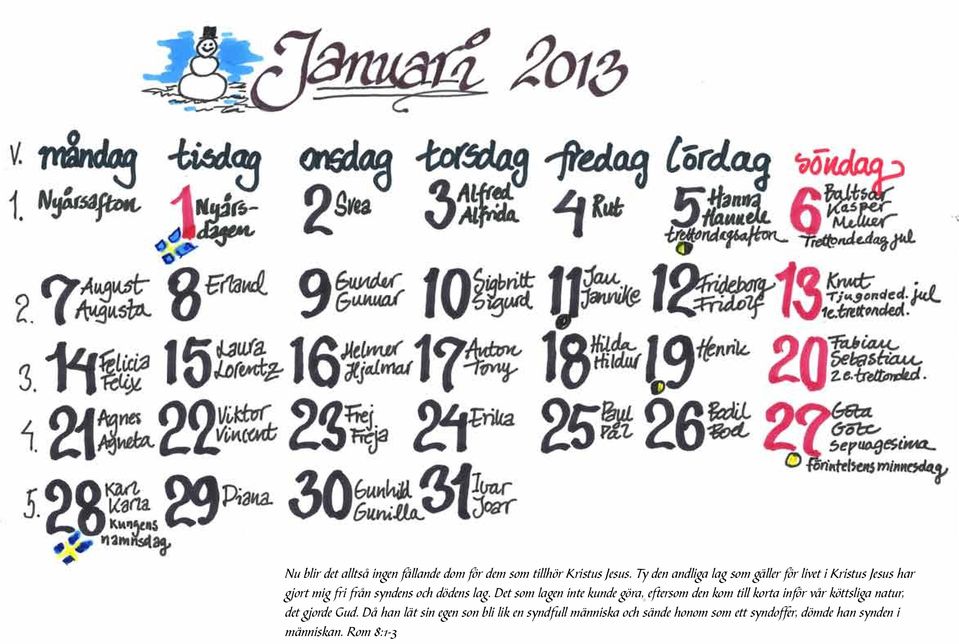 Januari 2013
V. måndag tisdag onsdag torsdag fredag lördag söndag
1. Nyårsafton
1 Nyårs-
dagen
2 Svea
3 Alfred
Alfrida
4 Rut
5 Hanna
Hannele
trettondagsafton
6 Baltsar
Kasper
Melker
Trettondedag jul
2. 7 August
Augusta
8 Erland
9 Gunder
Gunnar
10 Sigbritt
Sigurd
11 Jan
Jannike
12 Frideborg
Fridolf
13 Knut
Tjugonded. jul
1 e. trettonded.
3. 14 Felicia
Felix
15 Laura
Lorentz
16 Helmer
Hjalmar
17 Anton
Tony
18 Hilda
Hildur
19 Henrik
20 Fabian
Sebastian
2 e. trettonded.
4. 21 Agnes
Agneta
22 Viktor
Vincent
23 Frej
Freja
24 Erika
25 Paul
Pål
26 Bodil
Boel
27 Göta
Göte
Septuagesima
förintelsens minnesdag
5. 28 Karl
Karla
Kungens
namnsdag
29 Diana
30 Gunhild
Gunilla
31 Ivar
Joar
Nu blir det alltså ingen fällande dom för dem som tillhör Kristus Jesus. Ty den andliga lag som gäller för livet i Kristus Jesus har
gjort mig fri från syndens och dödens lag. Det som lagen inte kunde göra, eftersom den kom till korta inför vår köttsliga natur,
det gjorde Gud. Då han lät sin egen son bli lik en syndfull människa och sände honom som ett syndoffer, dömde han synden i
människan. Rom 8:1-3